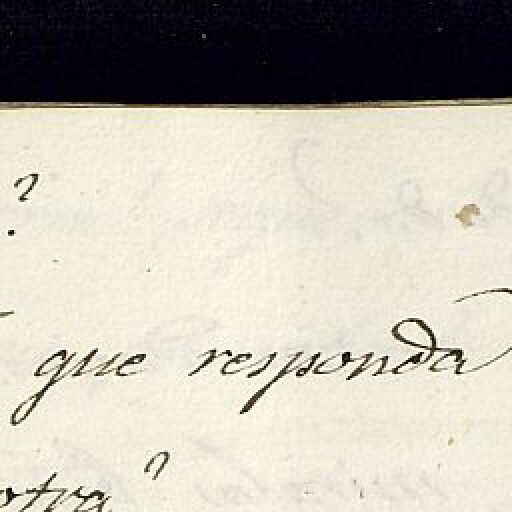 ?
que responda
otra?